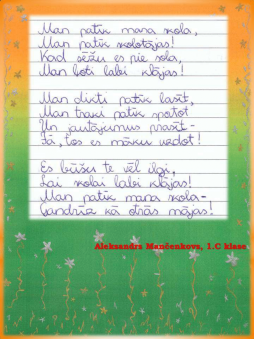 Man patīk mana skola,
Man patīk skolotājas!
Kad sēžu es pie sola,
Man ļoti labi klājas!
Man dikti patīk lasīt,
Man traki patīk
Un jautājumus prasīt -
Jā, tos es māku uzdot!
Es būšu te vēl ilgi,
Lai skolai labi klājas!
Man patīk mana skola -
Gandrīz kā otrās mājas!
Aleksandrs Mančenkovs, 1.C klase